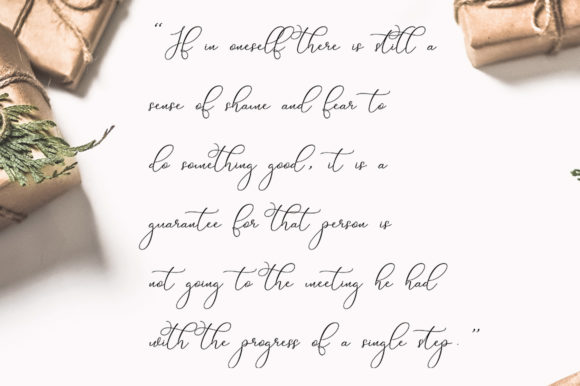 “If in oneself there is still a
sense of shame and fear to
do something good, it is a
guarantee for that person is
not going to the meeting he had
with the progress of a single step.”